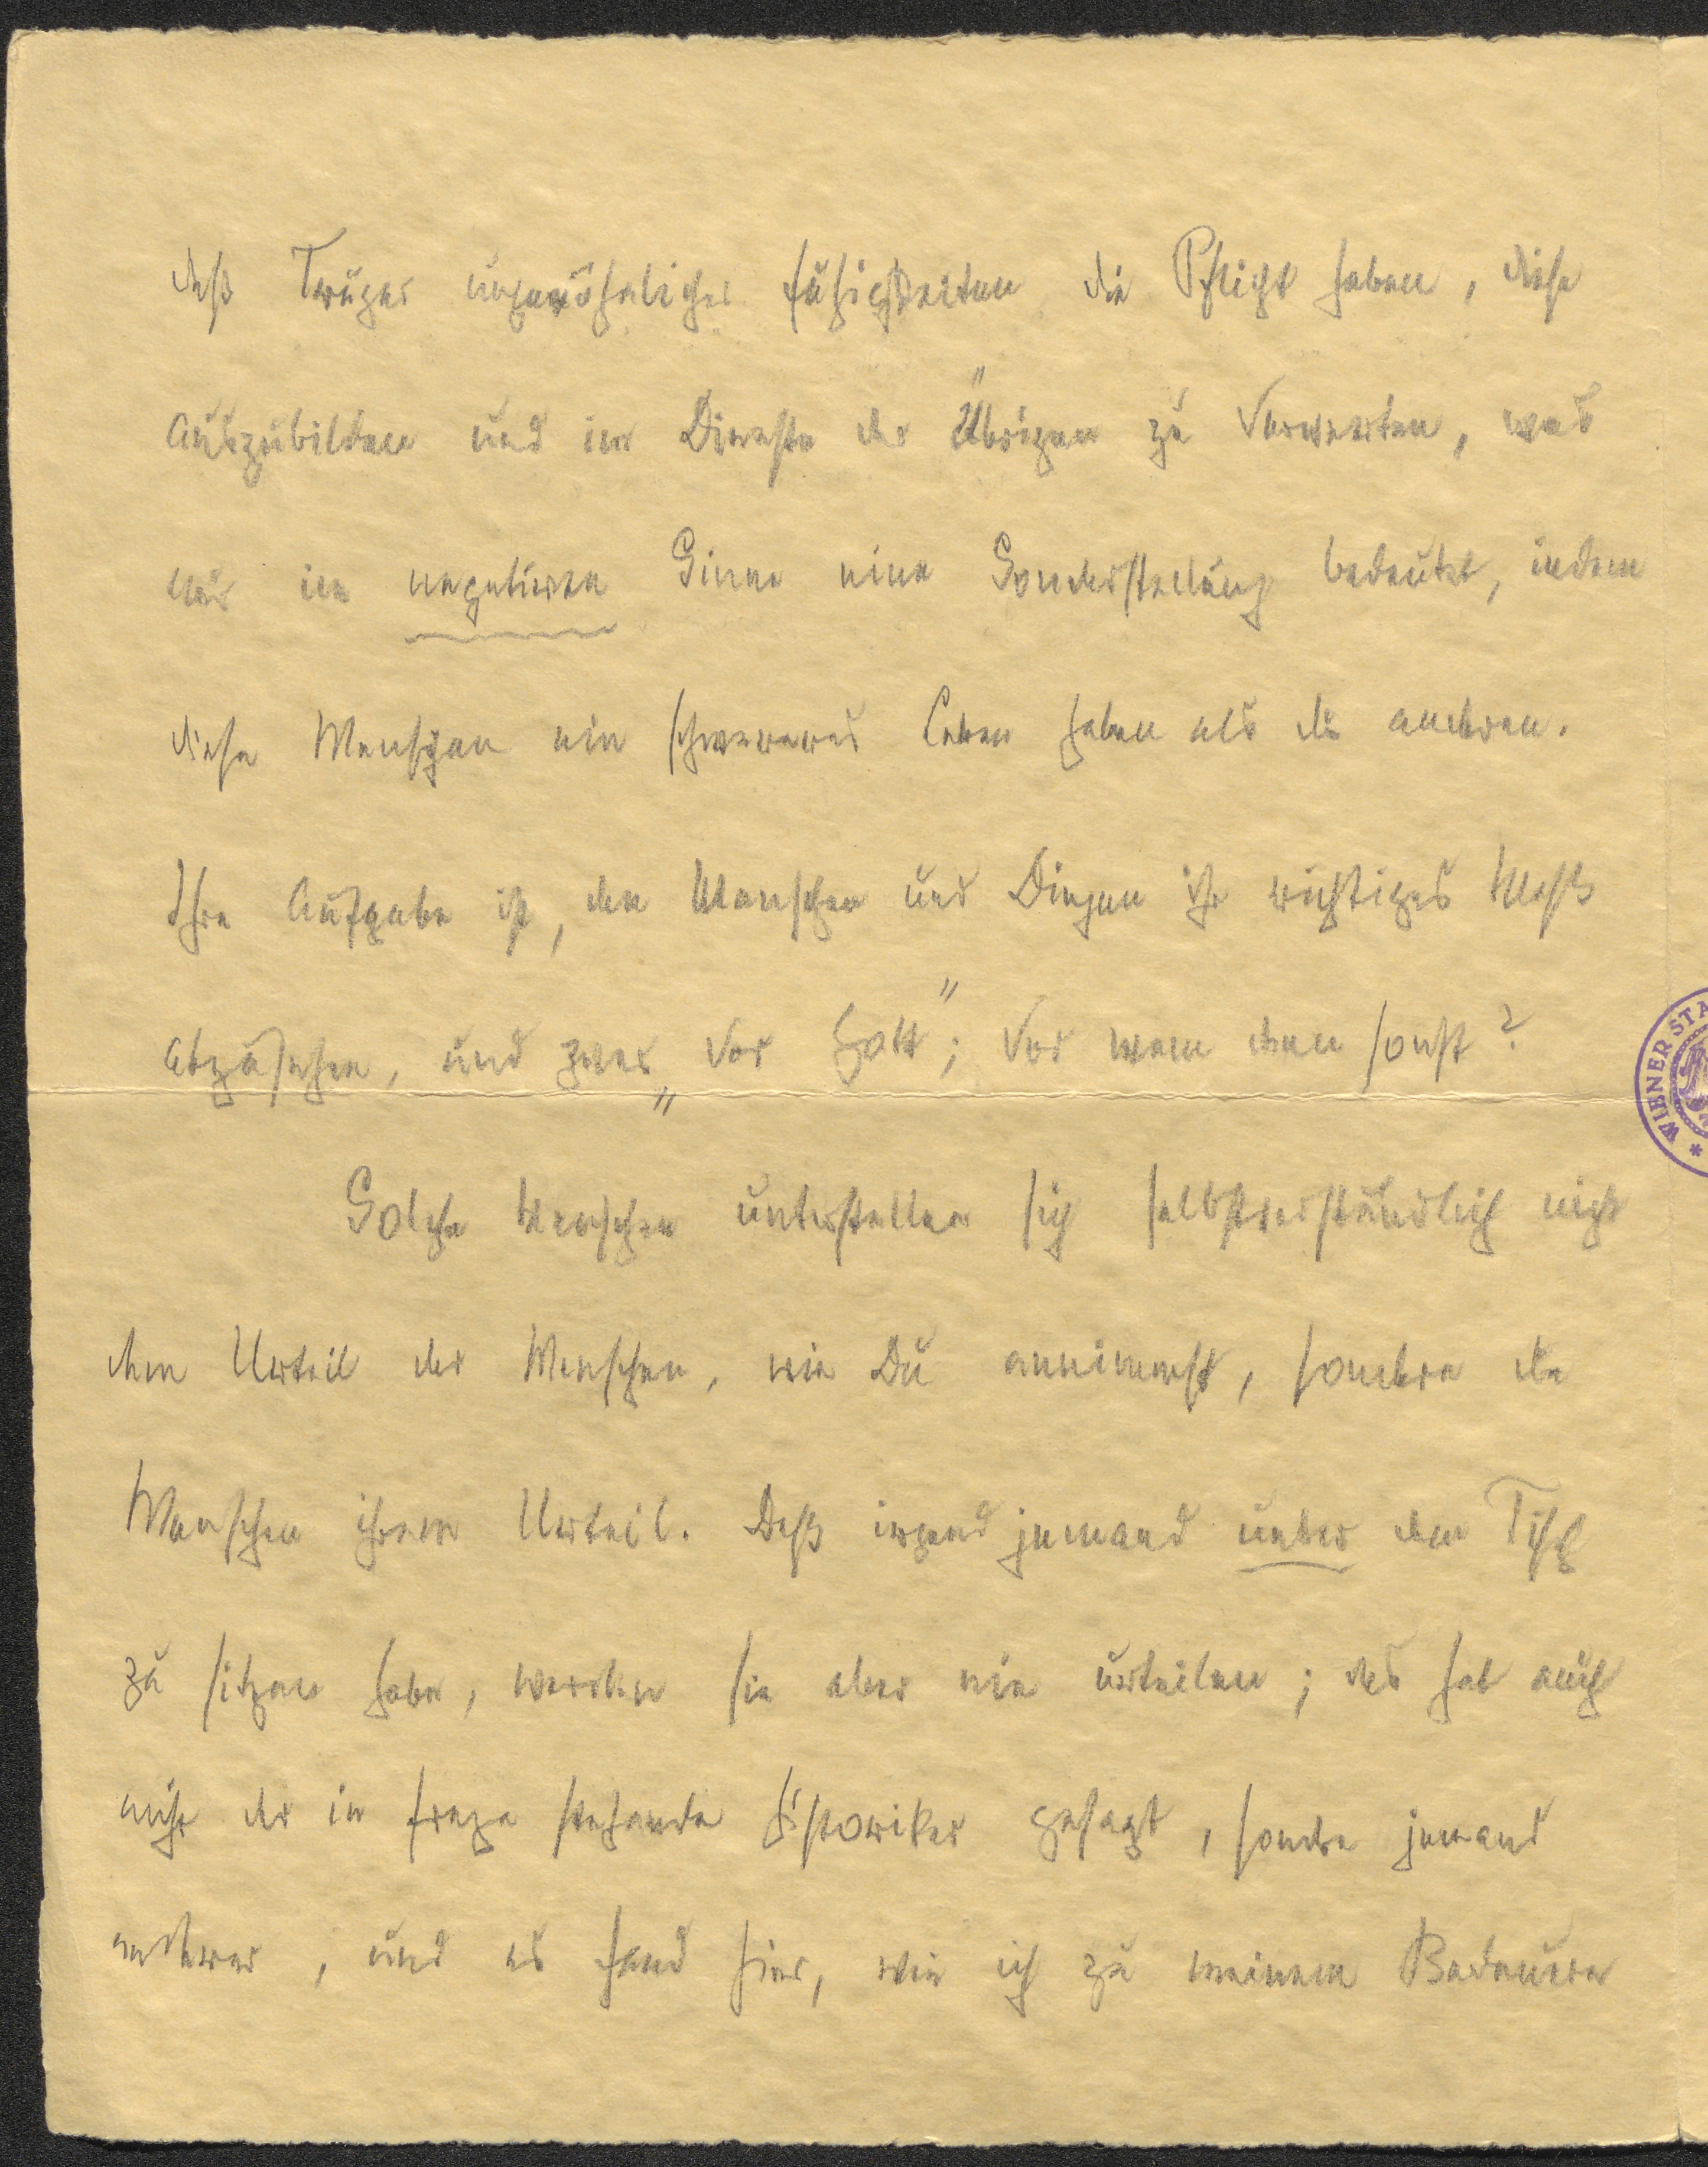 daß Träger ungewöhnlicher Fähigkeiten die Pflicht haben, diese
auszubilden und im Dienste der Übrigen zu verwerten, was
nur im negativen Sinne eine Sonderstellung bedeutet, indem
diese Menschen ein schwereres Leben haben als die anderen.
Ihre Aufgabe ist, den Menschen und Dingen ihr richtiges Maß
abzusehen, und zwar „vor Gott“; vor wem denn sonst?
Solche Menschen unterstellen sich selbstverständlich nicht
dem Urteil der Menschen, wie Du annimmst, sondern die
Menschen ihrem Urteil. Daß irgend jemand unter dem Tisch
zu sitzen habe, werden sie aber nie urteilen; das hat auch
nicht der in Frage stehende Historiker gesagt, sondern jemand
anderer, und es fand hier, wie ich zu meinem Bedauern
WIENER STA